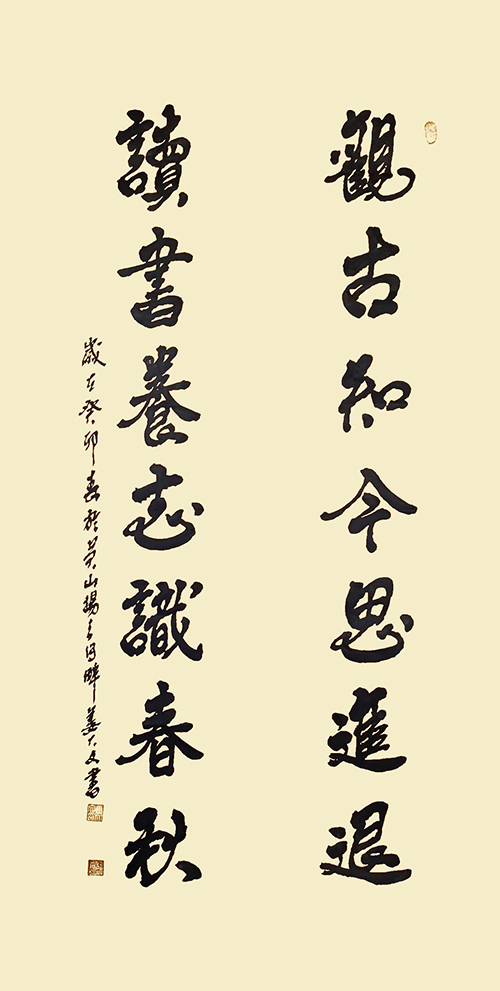 觀古知今思進退
讀書養志識春秋
歲在癸卯春於英山楊古河畔姜大文書